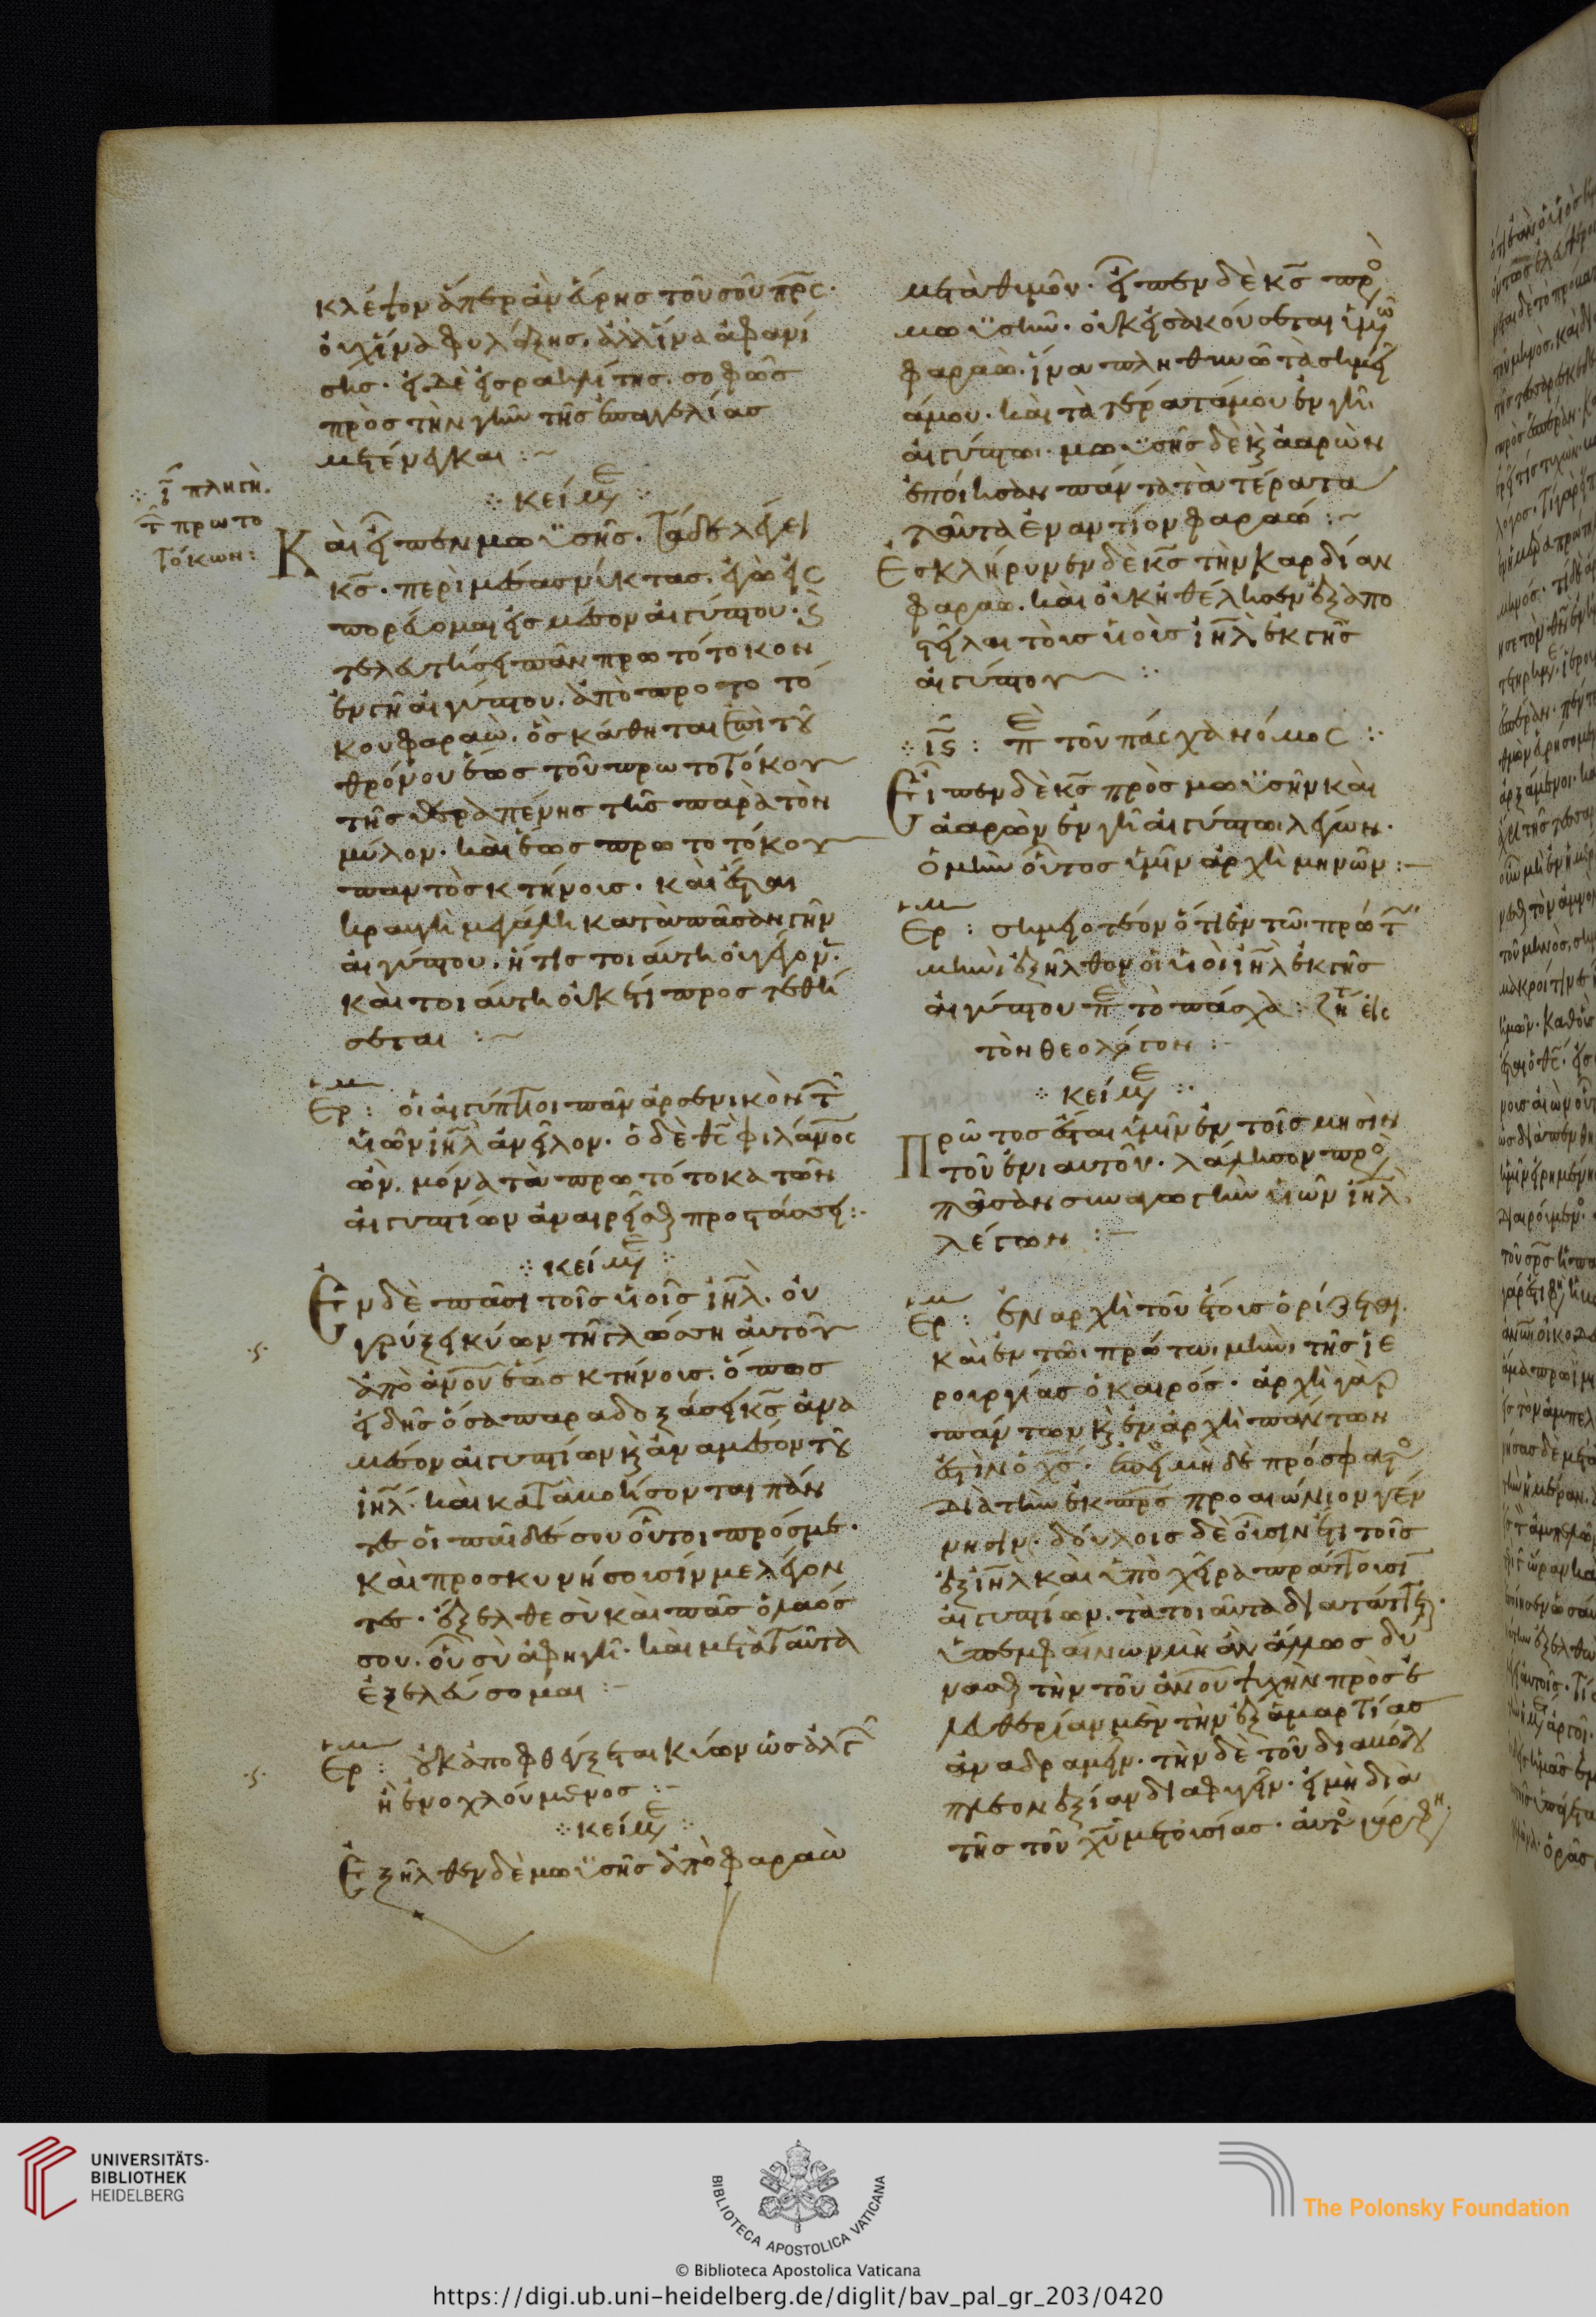 κλέψον ἅπερ ἂν εὕρης τοῦ σοῦ πρς.
οὐχ ἵνα φυλάξης. ἀλλ ἵνα ἀφανί
σης. εἰ δὲ ἰσραηλίτης. σοφῶς
πρὸς τὴν γῆν τῆς ἐπαγγελίας
μετένεγκαι :~
ι πληγὴ.
τ πρωτο
τόκων :
κείμε
Καὶ εἶπεν μωϋσῆς. τάδε λέγει
κς. περὶ μέσας νύκτας. ἐγὼ εἰς
πορεύομαι εἰς μέσον αἰγύπτου. ϛ
τελευτήσει πᾶν πρωτότοκον
ἐν γῆ αἰγύπτου. ἀπὸ προτοτό
κου φαραὼ. ὃς κάθηται ἐπὶ τοῦ
θρόνου ἕως τοῦ πρωτοτόκου
τῆς θεραπένης τῆς παρὰ τὸν
μύλον. καὶ ἕως πρωτοτόκου
παντὸς κτήνους. καὶ ἔσται
κραυγὴ μεγάλη κατὰ πᾶσαν γῆν
αἰγύπτου. ἥτις τοιάυτη οὐ γέγον.
καὶ τοιάυτη οὐκ ἔτι προστεθή
σεται :~
Ερμ : οἱ αἰγύπτιοι πᾶν ἀρσενικὸν τ
υἱῶν ιηλ ἀνεῖλον. ὁ δὲ θς φιλάνος
ὢν. μόνα τὰ πρωτότοκα τῶν
αἰγυπτίων ἀναιρεῖσθαι προστάσσει :
κείμε
Εν δὲ πᾶσι τοῖς υἱοῖς ιηλ. οὐ
γρύξει κύων τῆ γλώσση αὐτοῦ
ἀπὸ ανου ἕως κτήνους. ὅπως
εἰδῆς ὅσα παραδοξάσει κς ἀνα
μέσον αἰγυπτίων κ ἀναμέσον τοῦ
ιηλ. καὶ καταβήσονται πάν
τες οἱ παῖδές σου οὗτοι πρός με.
καὶ προσκυνήσουσίν με λέγον
τες. ἔξελθε σὺ καὶ πᾶς ὁ λαός
σου. οὗ σὺ ἀφηγῆ. καὶ μετὰ ταῦτα
ἐξελεύσομαι :~
Ερμ : οὐκ ἀποφθέγξεται κύων ὡς ἀλγ
ἢ ἐνοχλούμενος :~
κείμε
Εξῆλθεν δὲ μωϋσῆς ἀπὸ φαραὼ
μετὰ θυμοῦ. εἶπεν δὲ κς πρὸ
μωϋσῆν. οὐκ εἰσακούσεται ὑμῶ
φαραὼ. ἵνα πληθυνῶ τὰ σημεῖ
ά μου. καὶ τὰ τέρατά μου ἐν γῆ
αἰγύπτω. μωϋσῆς δὲ κ ἀαρὼν
ἐποίησαν πάντα τὰ τέρατα
ταῦτα ἐναντίον φαραώ :~
Εσκλήρυνεν δὲ κς τὴν καρδίαν
φαραὼ. καὶ οὐκ ἠθέλησεν ἐξαπο
στεῖλαι τοὺς υἱοὺς ιηλ ἐκ γῆς
αἰγύπτου :
ιϛ : πε τοῦ πάσχα νόμος :
Εἶπεν δὲ κς πρὸς μωϋσῆν καὶ
ἀαρὼν ἐν γῆ αἰγύπτω λέγων.
ὁ μὴν οὗτος ὑμῖν ἀρχὴ μηνῶν :~
Ερμ : σημειοτέον ὅτι ἐν τῶ πρώτ
μηνὶ ἐξῆλθον οἱ υἱοὶ ιηλ ἐκ γῆς
αἰγύπτου πε τὸ πάσχα : ζητ εἰς
τὸν θεολόγον :~
κείμε
Πρῶτος ἔσται ὑμῖν ἐν τοῖς μησὶν
τοῦ ἐνιαυτοῦ. λάλησον πρὸ
πᾶσαν συναγωγὴν υἱῶν ιηλ
λέγων :~
Ερμ : ἐν ἀρχῆ τοῦ ἔτους ὁρίζεται.
καὶ ἐν τῶ πρώτω μηνὶ τῆς ἱε
ρουργίας ὁ καιρός. ἀρχὴ γὰρ
πάντων κ ἐν ἀρχῆ πάντων
ἐστὶν ὁ χς. ἐπεὶ μὴ δὲ πρόσφατο
διὰ τὴν ἐκ πρς προαιώνιον γέν
νησιν. δούλοις δὲ οὖσιν ἔτι τοῖς
ἐξ ιηλ καὶ ὑπὸ χεῖρα πράττουσι
αἰγυπτίων. τὰ τοιαῦτα διατάττεται.
ὑπεμφαίνων μὴ ἂν ἄλλως δύ
νασθαι τὴν τοῦ ανου ψυχὴν πρὸς ἐ
λευθερίαν μὲν τὴν ἐξ ἁμαρτίας
ἀναδραμεῖν. τὴν δὲ τοῦ διαβόλου
πλεονεξίαν διαφυγεῖν. εἰ μὴ διὰ
τῆς τοῦ χυ μετουσίας.
UNIVERSITÄTS-
BIBLIOTHEK
HEIDELBERG
BIBLIOTECA APOSTOLICA VATICANA
The Polonsky Foundation
© Biblioteca Apostolica Vaticana
https://digi.ub.uni-heidelberg.de/diglit/bav_pal_gr_203/0420